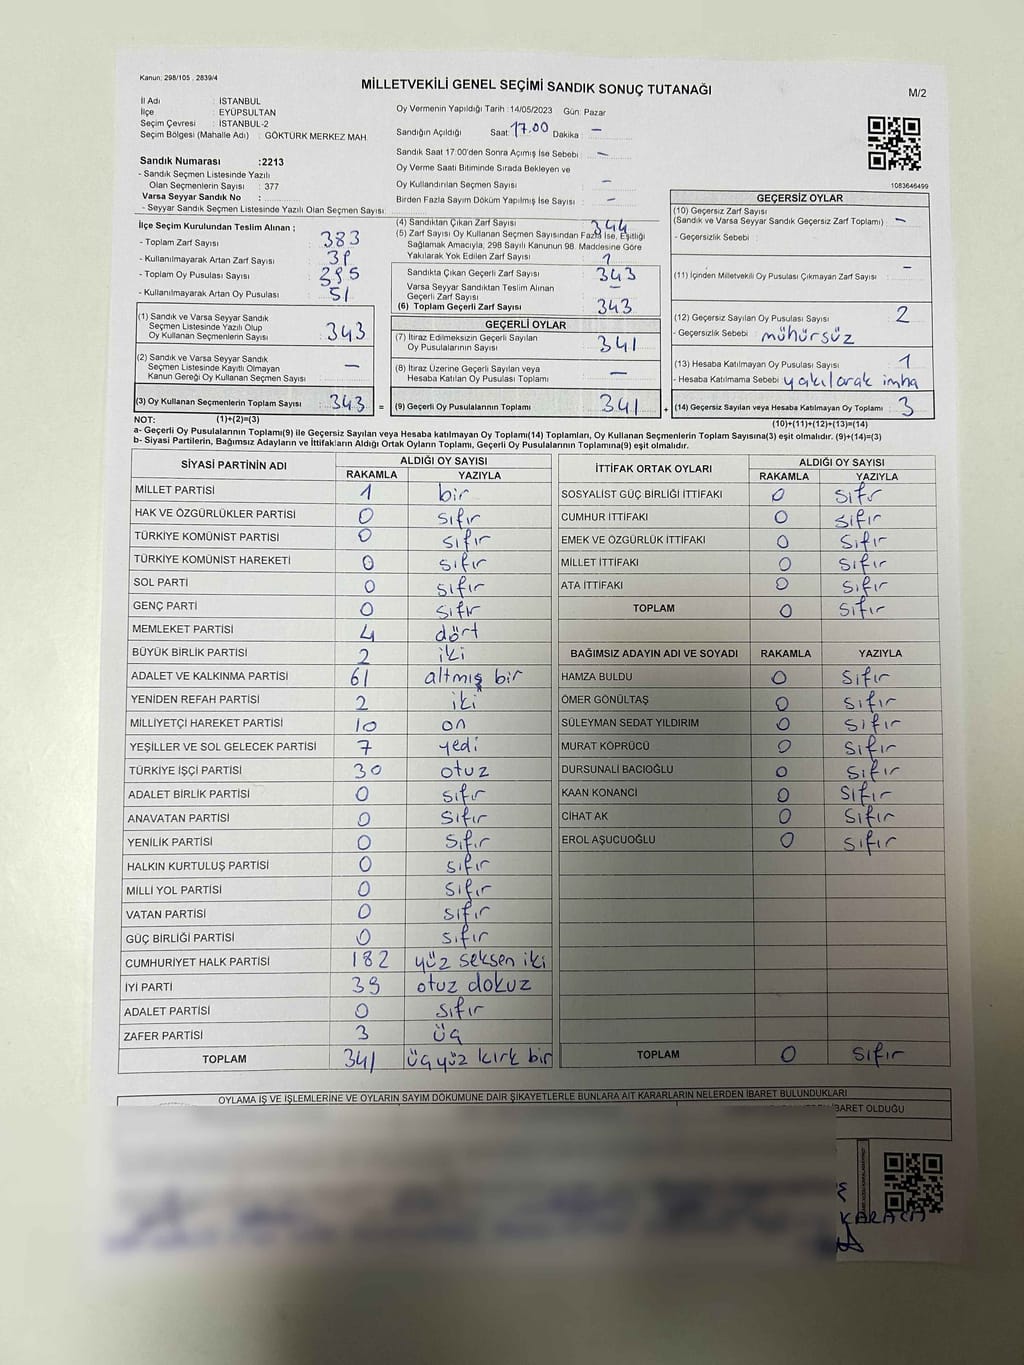 Kanun: 298/105 , 2839/4
MİLLETVEKİLİ GENEL SEÇİMİ SANDIK SONUÇ TUTANAĞI
M/2
İl Adı : İSTANBUL
İlçe : EYÜPSULTAN
Seçim Çevresi : İSTANBUL-2
Seçim Bölgesi (Mahalle Adı) : GÖKTÜRK MERKEZ MAH.
Sandık Numarası :2213
- Sandık Seçmen Listesinde Yazılı
Olan Seçmenlerin Sayısı : 377
Varsa Seyyar Sandık No :
- Seyyar Sandık Seçmen Listesinde Yazılı Olan Seçmen Sayısı:
Oy Vermenin Yapıldığı Tarih : 14/05/2023 Gün: Pazar
Sandığın Açıldığı Saat: 17.00 Dakika : —
Sandık Saat 17:00'den Sonra Açılmış İse Sebebi : —
Oy Verme Saati Bitiminde Sırada Bekleyen ve
Oy Kullandırılan Seçmen Sayısı : —
Birden Fazla Sayım Döküm Yapılmış İse Sayısı : —
1083646499
İlçe Seçim Kurulundan Teslim Alınan ;
- Toplam Zarf Sayısı : 383
- Kullanılmayarak Artan Zarf Sayısı :
- Toplam Oy Pusulası Sayısı : 395
- Kullanılmayarak Artan Oy Pusulası : 51
(1) Sandık ve Varsa Seyyar Sandık
Seçmen Listesinde Yazılı Olup
Oy Kullanan Seçmenlerin Sayısı : 343
(2) Sandık ve Varsa Seyyar Sandık
Seçmen Listesinde Kayıtlı Olmayan
Kanun Gereği Oy Kullanan Seçmen Sayısı : —
(3) Oy Kullanan Seçmenlerin Toplam Sayısı : 343 =
(4) Sandıktan Çıkan Zarf Sayısı : 344
(5) Zarf Sayısı Oy Kullanan Seçmen Sayısından Fazla İse, Eşitliği
Sağlamak Amacıyla, 298 Sayılı Kanunun 98. Maddesine Göre
Yakılarak Yok Edilen Zarf Sayısı : 1
Sandıkta Çıkan Geçerli Zarf Sayısı : 343
Varsa Seyyar Sandıktan Teslim Alınan
Geçerli Zarf Sayısı : —
(6) Toplam Geçerli Zarf Sayısı : 343
GEÇERLİ OYLAR
(7) İtiraz Edilmeksizin Geçerli Sayılan
Oy Pusulalarının Sayısı : 341
(8) İtiraz Üzerine Geçerli Sayılan veya
Hesaba Katılan Oy Pusulası Toplamı : —
(9) Geçerli Oy Pusulalarının Toplamı : 341 +
GEÇERSİZ OYLAR
(10) Geçersiz Zarf Sayısı
(Sandık ve Varsa Seyyar Sandık Geçersiz Zarf Toplamı) : —
- Geçersizlik Sebebi :
(11) İçinden Milletvekili Oy Pusulası Çıkmayan Zarf Sayısı : —
(12) Geçersiz Sayılan Oy Pusulası Sayısı : 2
- Geçersizlik Sebebi : mühürsüz
(13) Hesaba Katılmayan Oy Pusulası Sayısı : 1
- Hesaba Katılmama Sebebi : yakılarak imha
(14) Geçersiz Sayılan veya Hesaba Katılmayan Oy Toplamı : 3
NOT: (1)+(2)=(3) (10)+(11)+(12)+(13)=(14)
a- Geçerli Oy Pusulalarının Toplamı(9) ile Geçersiz Sayılan veya Hesaba katılmayan Oy Toplamı(14) Toplamları, Oy Kullanan Seçmenlerin Toplam Sayısına(3) eşit olmalıdır. (9)+(14)=(3)
b- Siyasi Partilerin, Bağımsız Adayların ve İttifakların Aldığı Ortak Oyların Toplamı, Geçerli Oy Pusulalarının Toplamına(9) eşit olmalıdır.
SİYASİ PARTİNİN ADI ALDIĞI OY SAYISI
RAKAMLA YAZIYLA
MİLLET PARTİSİ 1 bir
HAK VE ÖZGÜRLÜKLER PARTİSİ 0 sıfır
TÜRKİYE KOMÜNİST PARTİSİ 0 sıfır
TÜRKİYE KOMÜNİST HAREKETİ 0 sıfır
SOL PARTİ 0 sıfır
GENÇ PARTİ 0 sıfır
MEMLEKET PARTİSİ 4 dört
BÜYÜK BİRLİK PARTİSİ 2 iki
ADALET VE KALKINMA PARTİSİ 61 altmış bir
YENİDEN REFAH PARTİSİ 2 iki
MİLLİYETÇİ HAREKET PARTİSİ 10 on
YEŞİLLER VE SOL GELECEK PARTİSİ 7 yedi
TÜRKİYE İŞÇİ PARTİSİ 30 otuz
ADALET BİRLİK PARTİSİ 0 sıfır
ANAVATAN PARTİSİ 0 sıfır
YENİLİK PARTİSİ 0 sıfır
HALKIN KURTULUŞ PARTİSİ 0 sıfır
MİLLİ YOL PARTİSİ 0 sıfır
VATAN PARTİSİ 0 sıfır
GÜÇ BİRLİĞİ PARTİSİ 0 sıfır
CUMHURİYET HALK PARTİSİ 182 yüz seksen iki
İYİ PARTİ 39 otuz dokuz
ADALET PARTİSİ 0 sıfır
ZAFER PARTİSİ 3 üç
TOPLAM 341 üçyüz kırk bir
İTTİFAK ORTAK OYLARI ALDIĞI OY SAYISI
RAKAMLA YAZIYLA
SOSYALİST GÜÇ BİRLİĞİ İTTİFAKI 0 sıfr
CUMHUR İTTİFAKI 0 sıfır
EMEK VE ÖZGÜRLÜK İTTİFAKI 0 sıfır
MİLLET İTTİFAKI 0 sıfır
ATA İTTİFAKI 0 sıfır
TOPLAM 0 sıfır
BAĞIMSIZ ADAYIN ADI VE SOYADI RAKAMLA YAZIYLA
HAMZA BULDU 0 sıfır
ÖMER GÖNÜLTAŞ 0 sıfır
SÜLEYMAN SEDAT YILDIRIM 0 sıfır
MURAT KÖPRÜCÜ 0 sıfır
DURSUNALİ BACIOĞLU 0 sıfır
KAAN KONANCİ 0 sıfır
CİHAT AK 0 sıfır
EROL AŞUCUOĞLU 0 sıfır
TOPLAM 0 sıfır
OYLAMA İŞ VE İŞLEMLERİNE VE OYLARIN SAYIM DÖKÜMÜNE DAİR ŞİKAYETLERLE BUNLARA AİT KARARLARIN NELERDEN İBARET BULUNDUKLARI
İBARET OLDUĞU
KARACA